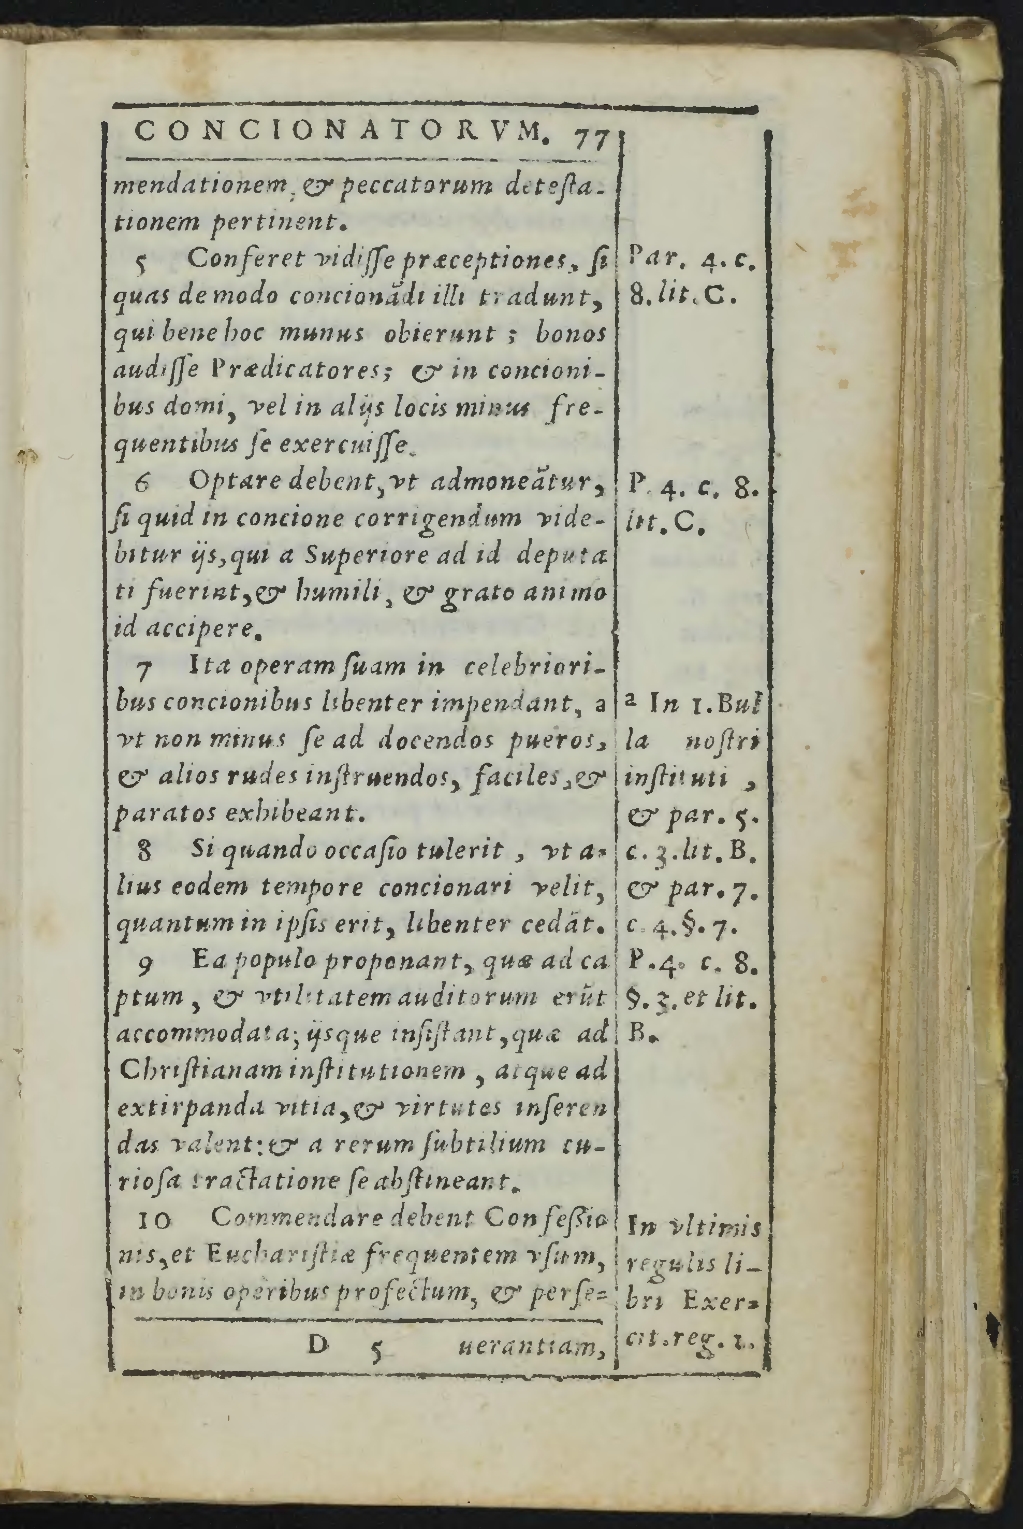 CONCIONATORVM. 77
mendationem, & peccatorum detesta-
tionem pertinent.
5 Conferet vidisse præceptiones, si
quas de modo concionãdi illi tradunt,
qui bene hoc munus obierunt ; bonos
audisse Prædicatores; & in concioni-
bus domi, vel in alijs locis minus fre-
quentibus se exercuisse.
6 Optare debent, vt admoneãtur,
si quid in concione corrigendum vide-
bitur ijs, qui a Superiore ad id deputa
ti fuerint, & humili, & grato animo
id accipere.
7 Ita operam suam in celebriori-
bus concionibus libenter impendant, a
vt non minus se ad docendos pueros,
& alios rudes instruendos, faciles, &
paratos exhibeant.
8 Si quando occasio tulerit , vt a-
lius eodem tempore concionari velit,
quantum in ipsis erit, libenter cedãt.
9 Ea populo proponant, quæ ad ca
ptum , & vtilitatem auditorum erũt
accommodata; ijsque insistant, quæ ad
Christianam institutionem , atque ad
extirpanda vitia, & virtutes inseren
das valent: & a rerum subtilium cu-
riosa tractatione se abstineant.
10 Commendare debent Confessio
nis, et Eucharistiæ frequentem vsum,
in bonis operibus profectum, & perse-
D 5 uerantiam,
Par. 4. c.
8. lit. C.
P. 4. c. 8.
lit. C.
a In 1. Bul
la nostri
instituti ,
& par. 5.
c. 3. lit. B.
& par. 7.
c. 4. §. 7.
P. 4. c. 8.
§. 3. et lit.
B.
In vltimis
regulis li-
bri Exer-
cit. reg. 1.